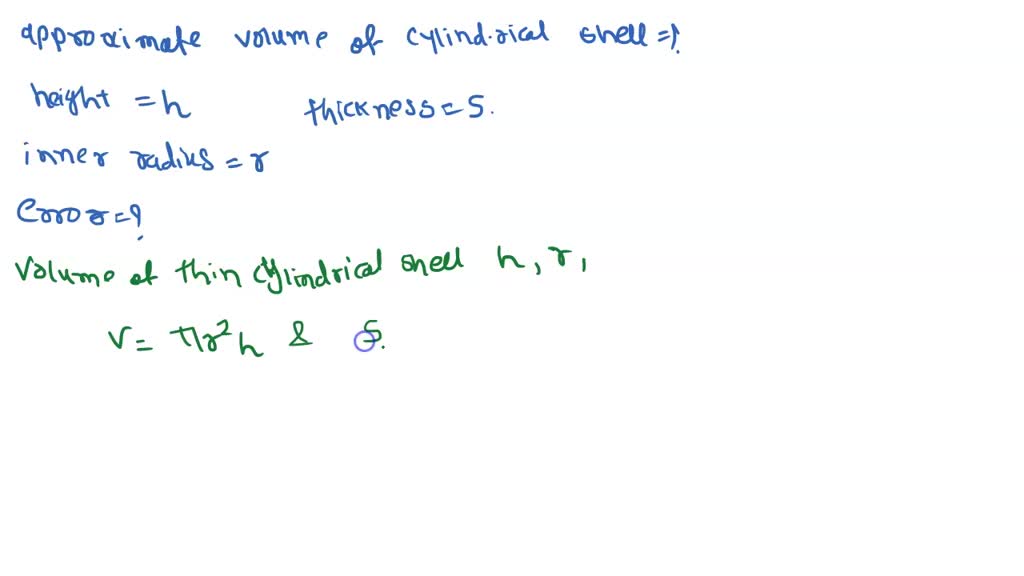 approximate volume of cylindrical shell =?
height = h thickness = S.
inner radius = r
Error = ?
Volume of thin cylindrical shell h, r,
V = πr²h & S.